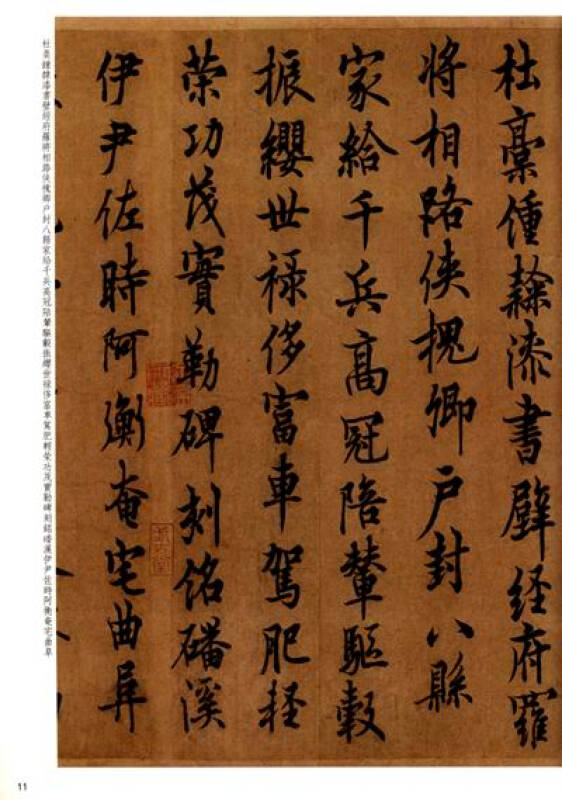 杜稾鍾隸漆書壁經府羅
將相路俠槐卿戶封八縣
家給千兵高冠陪輦驅轂
振纓世祿侈富車駕肥輕
榮功茂實勒碑刻銘磻溪
伊尹佐時阿衡奄宅曲阜
杜稾鍾隸漆書壁經府羅將相路俠槐卿戶封八縣家給千兵高冠陪輦驅轂振纓世祿侈富車駕肥輕榮功茂實勒碑刻銘磻溪伊尹佐時阿衡奄宅曲阜
11